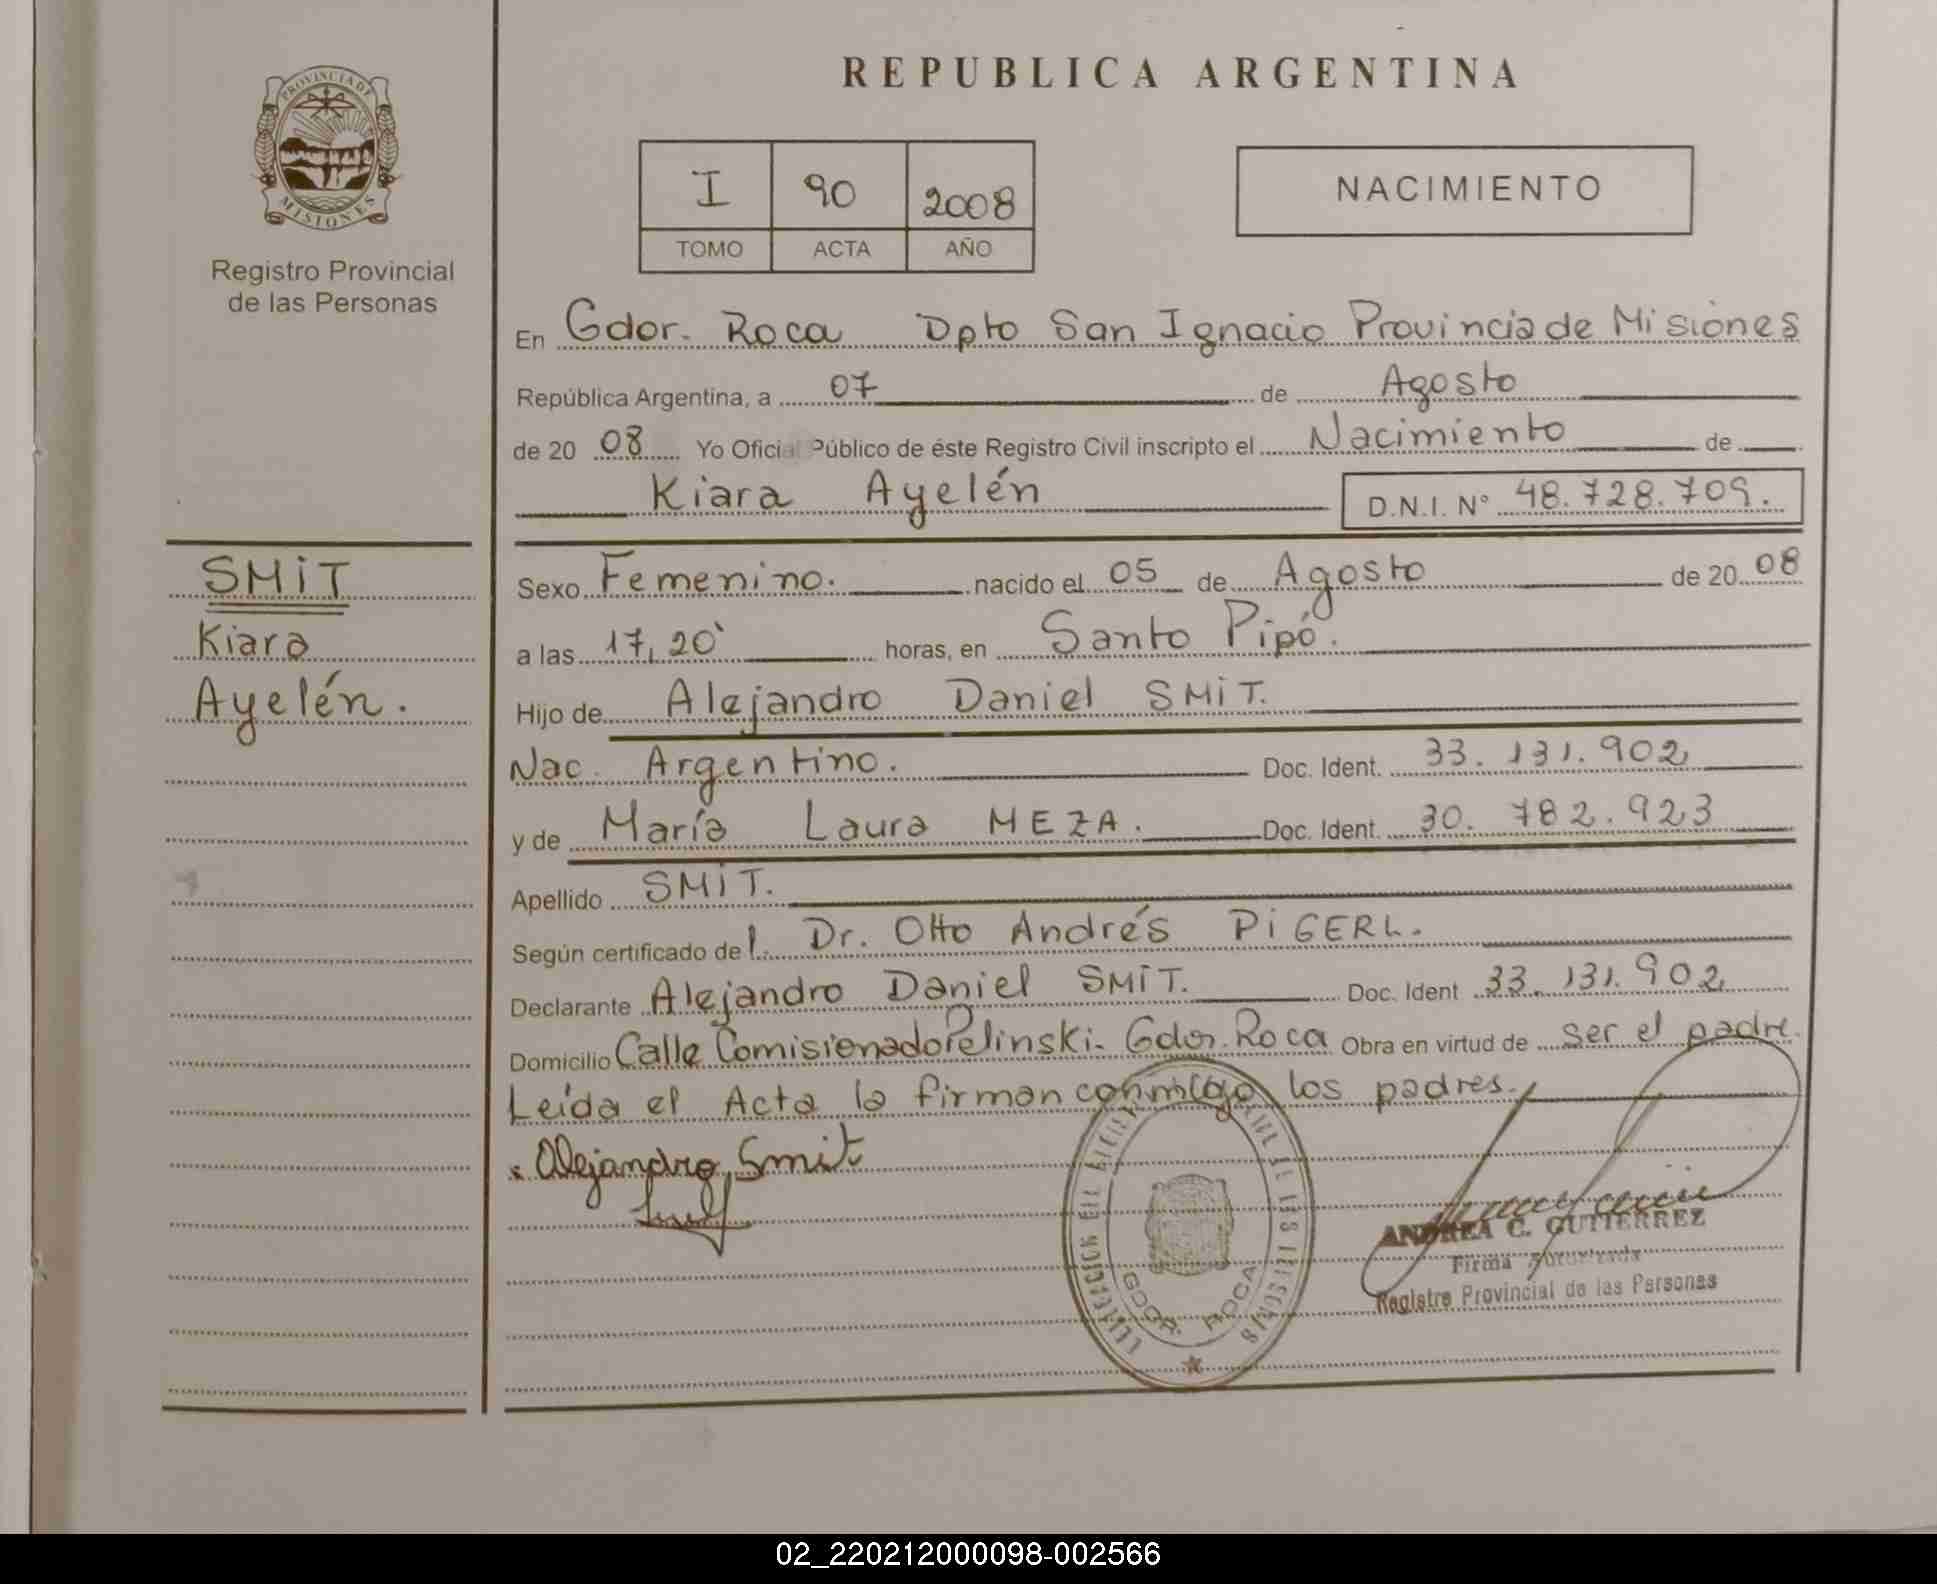 REPUBLICA ARGENTINA
PROVINCIA DE
MISIONES
Registro Provincial
de las Personas
I 90 2008
TOMO ACTA AÑO
NACIMIENTO
En Gdor. Roca Dpto San Ignacio Provincia de Misiones
República Argentina, a 07 de Agosto
de 20 08 Yo Oficial Público de éste Registro Civil inscripto el Nacimiento de
Kiara Ayelén D.N.I. N° 48.728.709.
SMiT
Kiara
Ayelén.
Sexo Femenino. nacido el 05 de Agosto de 20 08
a las 17,20` horas, en Santo Pipó.
Hijo de Alejandro Daniel SMiT.
Nac. Argentino. Doc. Ident. 33.131.902
y de María Laura MEZA. Doc. Ident. 30.782.923
Apellido SMiT.
Según certificado del. Dr. Otto Andrés PiGERL.
Declarante Alejandro Daniel SMiT. Doc. Ident 33.131.902
Domicilio Calle Comisionado Pelinski. Gdor. Roca Obra en virtud de ser el padre.
Leída el Acta la firman conmigo los padres.
Alejandro Smit
GDOR. ROCA
ANDREA C. GUTIERREZ
Firma Autorizada
Registro Provincial de las Personas
02_220212000098-002566